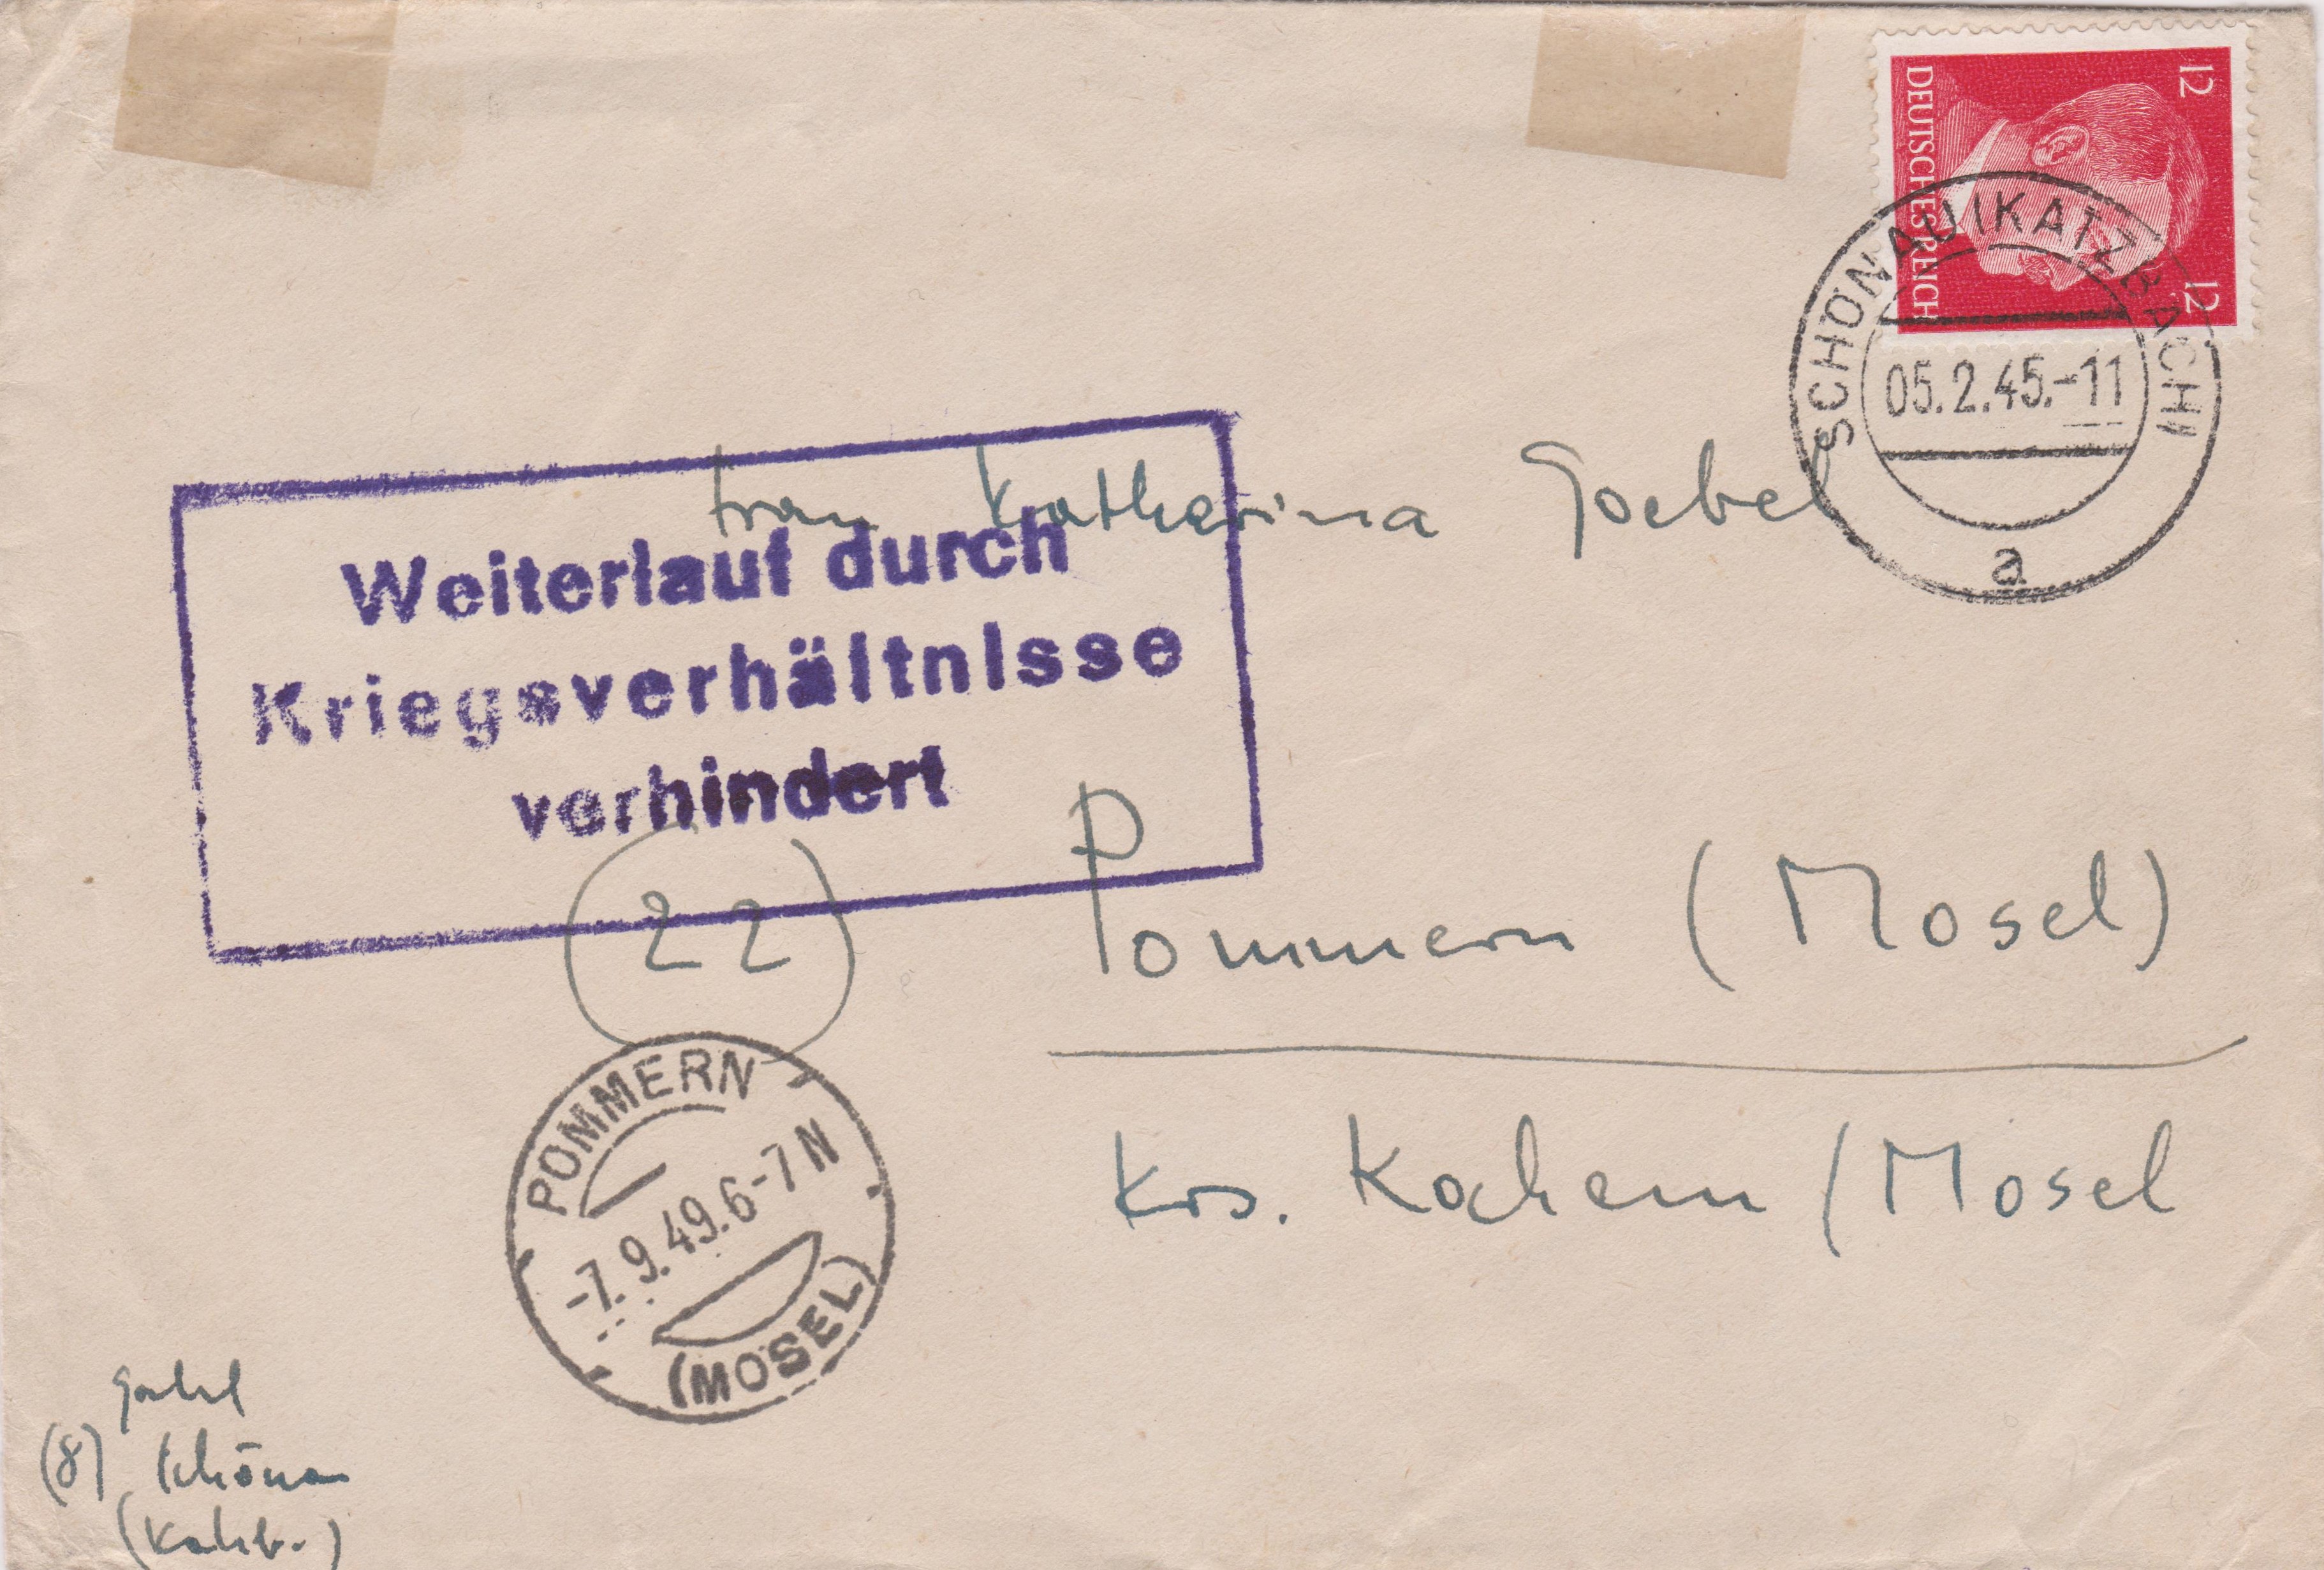 12 DEUTSCHES REICH 12
SCHÖNAU (KATZBACH)
05.2.45.-11
a
Frau Katharina Goebel
Weiterlauf durch
Kriegsverhältnisse
verhindert
(22) Pommern (Mosel)
Krs. Kochem / Mosel
POMMERN
-7.9.49.6-7N
(MOSEL)
Goebel
(8) Schönau
(Katzb.)